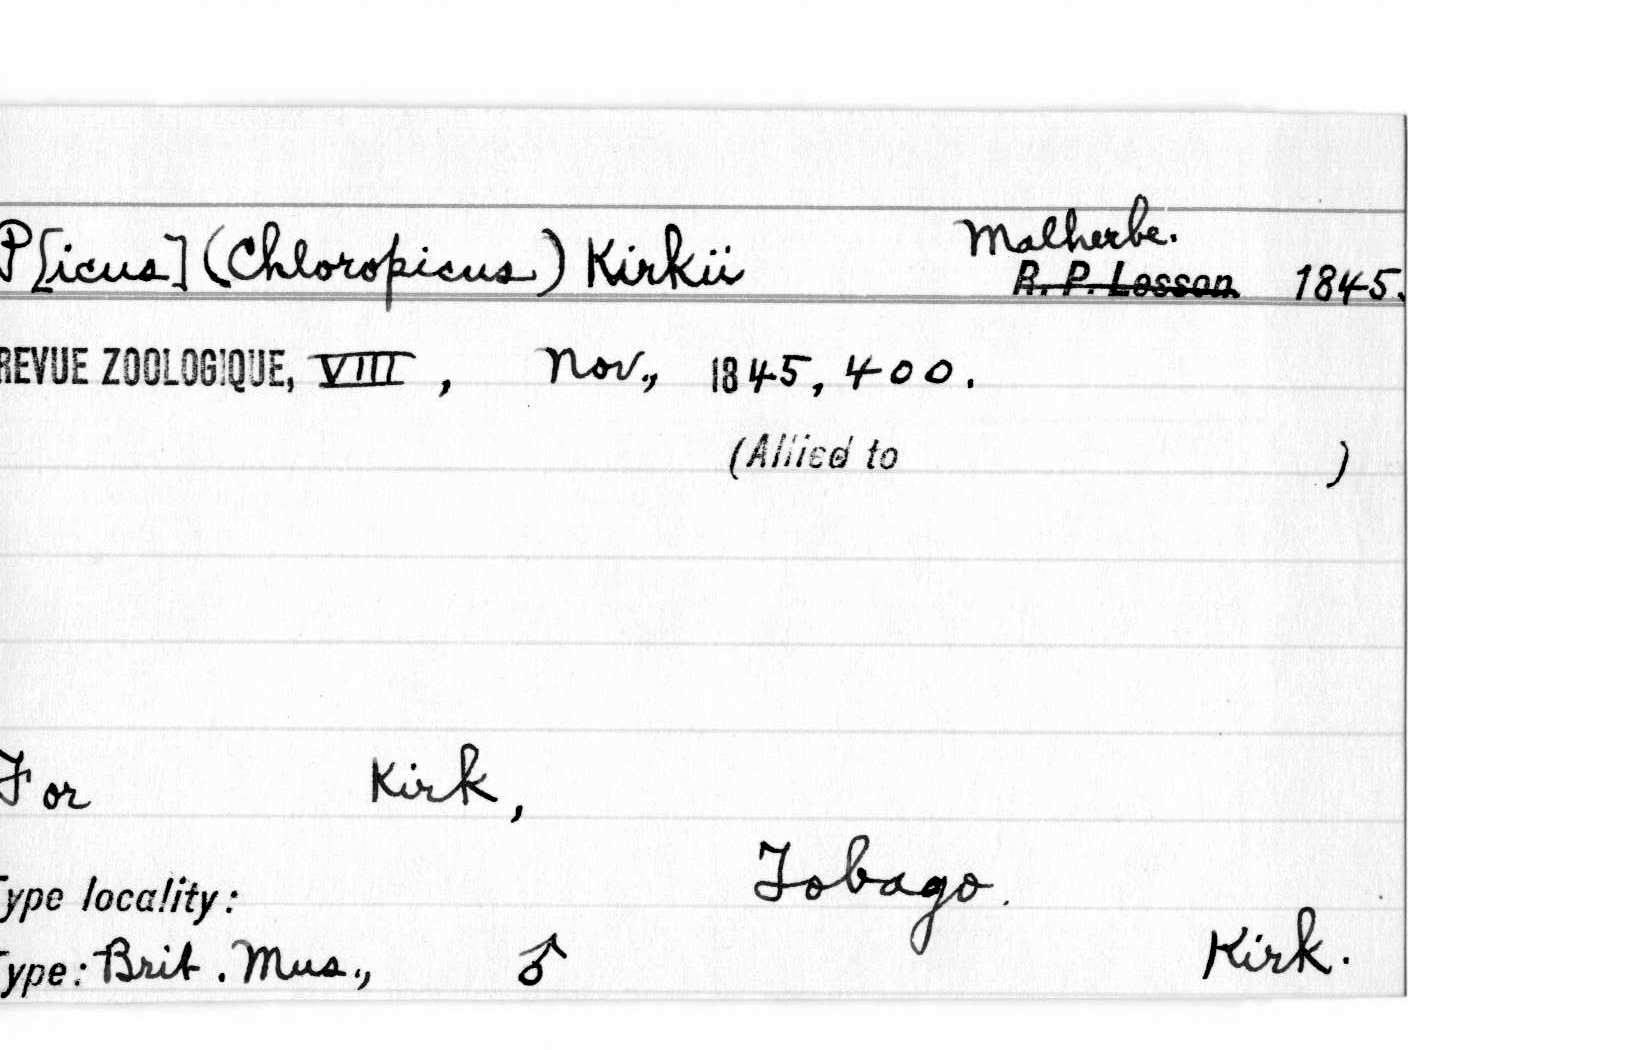 P[icus] (Chloropicus) Kirkii Malherbe.
R. P. Lesson 1845.
REVUE ZOOLOGIQUE, VIII, Nov., 1845, 400.
(Allied to )
For Kirk,
Tobago.
Type locality:
Kirk.
Type: Brit. Mus., ♂